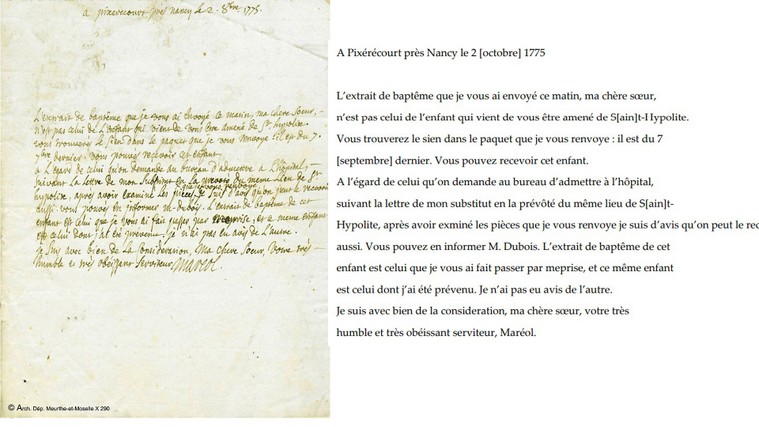 a pixerecourt près nancy le 2. 8bre 1775.
L'extrait de baptême que je vous ai envoyé ce matin, ma chere Soeur,
n'est pas celui de L'enfant qui vient de vous être amené de St hypolite.
vous trouverez le sien dans le paquet que je vous renvoye : il est du 7.
7bre dernier. vous pouvez recevoir cet enfant.
a L'égard de celui qu'on demande au bureau d'admettre a L'hôpital,
suivant la Lettre de mon Substitut en la prevoté du meme Lieu de St
que je vous renvoye
hypolite, après avoir examiné les pieces je suis d'avis qu'on peut le recevoir
aussi. vous pouvez en informer M. dubois. L'extrait de baptême de cet
enfant est celui que je vous ai fait passer par meprise, et ce meme enfant
est celui dont j'ai été prevenu. je n'ai pas eu avis de L'autre.
je suis avec bien de la consideration, Ma chere Soeur, votre très
humble et très obéissant Serviteur, Mareol.
© Arch. Dép. Meurthe-et-Moselle X 290
A Pixérécourt près Nancy le 2 [octobre] 1775
L’extrait de baptême que je vous ai envoyé ce matin, ma chère sœur,
n’est pas celui de l’enfant qui vient de vous être amené de S[ain]t-Hypolite.
Vous trouverez le sien dans le paquet que je vous renvoye : il est du 7
[septembre] dernier. Vous pouvez recevoir cet enfant.
A l’égard de celui qu’on demande au bureau d’admettre à l’hôpital,
suivant la lettre de mon substitut en la prévôté du même lieu de S[ain]t-
Hypolite, après avoir exminé les pièces que je vous renvoye je suis d’avis qu’on peut le rec
aussi. Vous pouvez en informer M. Dubois. L’extrait de baptême de cet
enfant est celui que je vous ai fait passer par meprise, et ce même enfant
est celui dont j’ai été prévenu. Je n’ai pas eu avis de l’autre.
Je suis avec bien de la consideration, ma chère sœur, votre très
humble et très obéissant serviteur, Maréol.